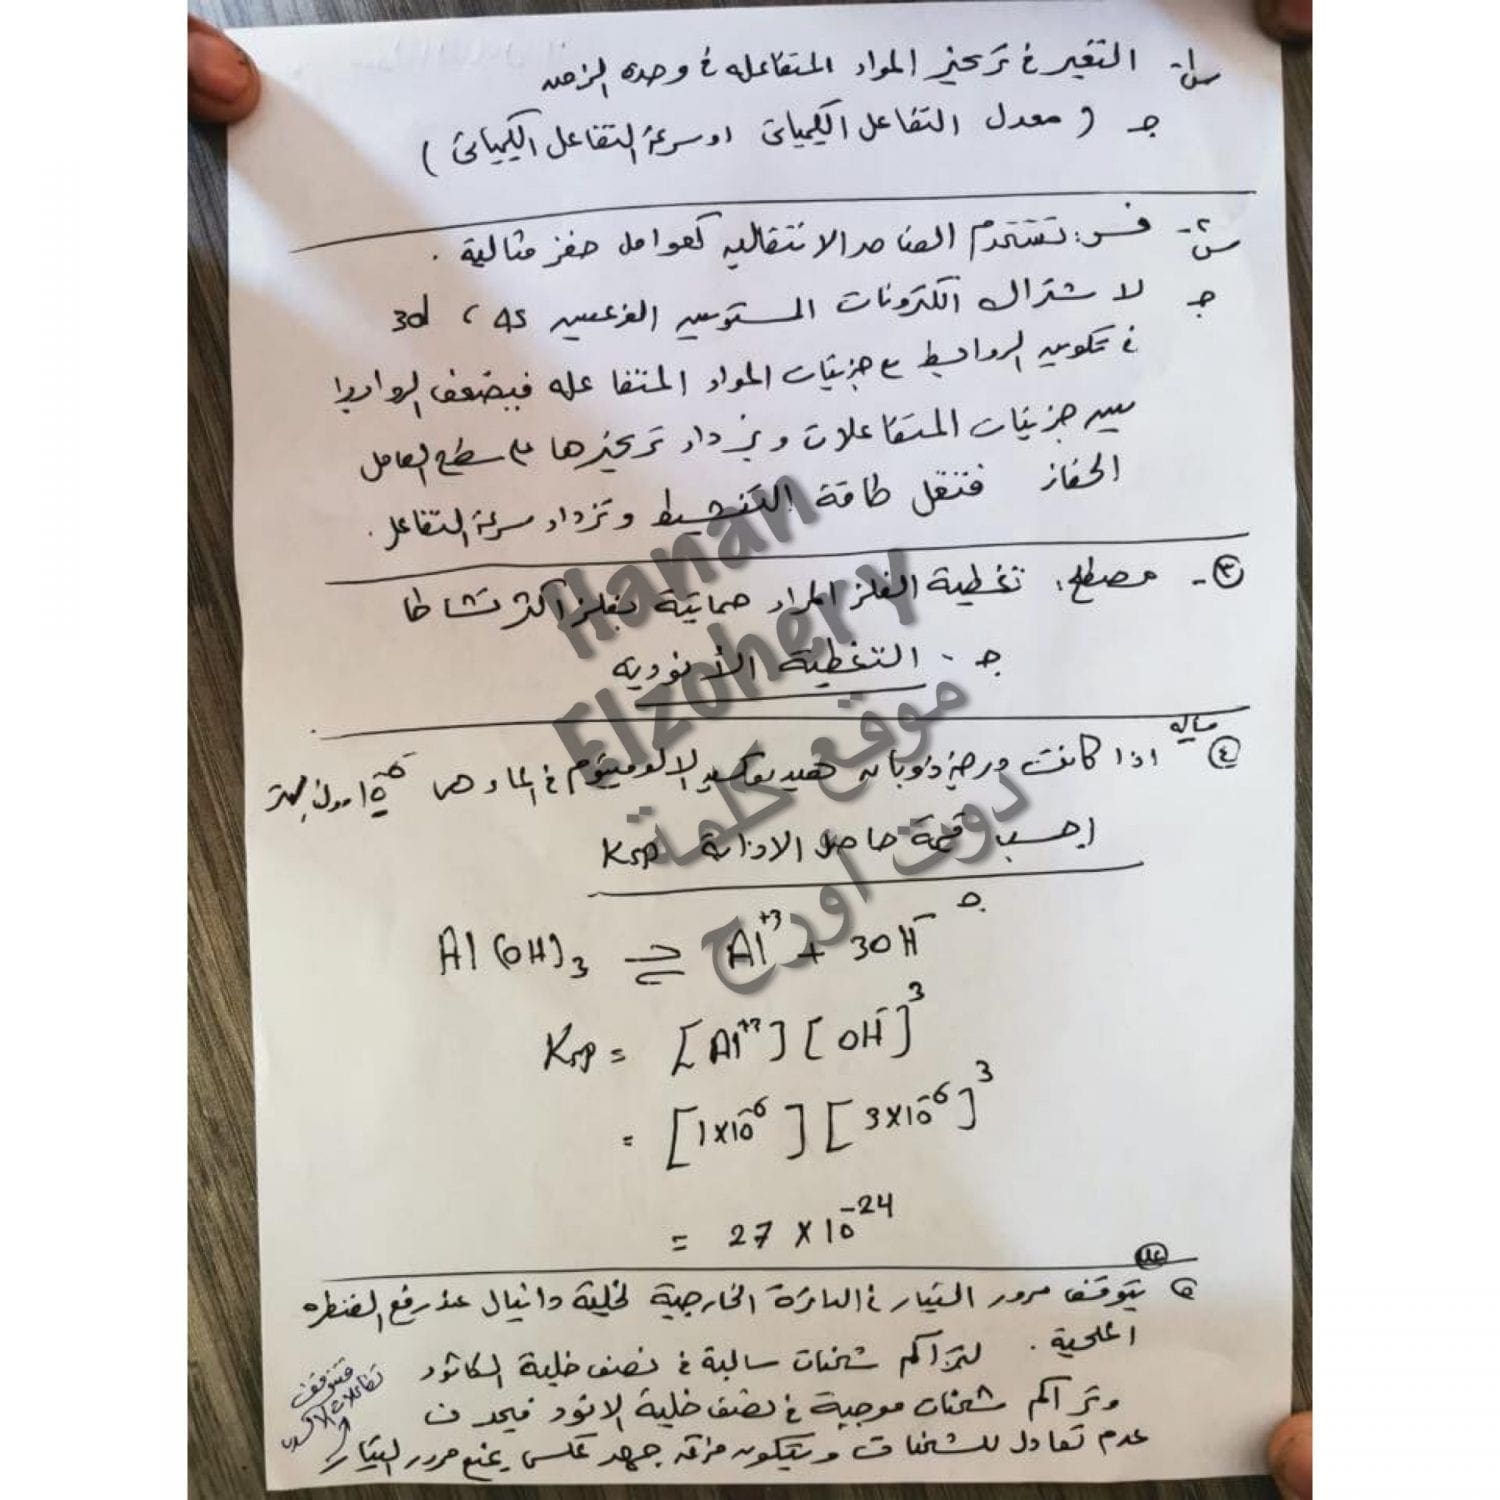 س١- التغير في تركيز المواد المتفاعله في وحدة الزمن
جـ ( معدل التفاعل الكيميائى او سرعة التفاعل الكيميائى )
س٢- فسر: تستخدم العناصر الانتقاليه كعوامل حفز مثالية .
جـ لاشتراك الكترونات المستويين الفرعيين 4S ، 3d
في تكوين الروابط مع جزيئات المواد المتفاعله فيضعف الروابط
بين جزيئات المتفاعلات ويزداد تركيزها على سطح العامل
الحفاز فتقل طاقة التنشيط وتزداد سرعة التفاعل .
٣- مصطلح: تغطية الفلز المراد حمايتة بفلز اكثر نشاطا
جـ - التغطية الأنوديه
مساله
٤ اذا كانت درجة ذوبانه هيدروكسيد الالومنيوم في الماء هى 10⁻⁶ مول/لتر
احسب قيمة حاصل الاذابة Ksp
جـ
Al(OH)₃ ⇌ Al⁺³ + 3OH⁻
Ksp = [Al⁺³] [OH⁻]³
= [1×10⁻⁶] [3×10⁻⁶]³
= 27 × 10⁻²⁴
علل
٥ يتوقف مرور التيار في الدائرة الخارجية لخلية دانيال عند رفع القنطره
الملحية . لتراكم شحنات سالبة في نصف خلية الكاثود
وتراكم شحنات موجبة في نصف خلية الانود فيحدث
عدم تعادل للشحنات ويتكون فرق جهد عكسى يمنع مرور التيار
فتتوقف
تفاعلات
Hanan
Elzohery
موقع كلمة
دوت أورج